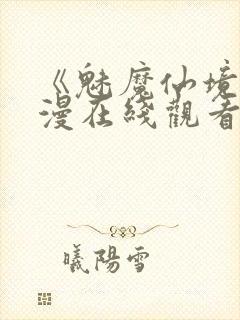 《魅魔仙境
漫在綫觀看
曦陽雪